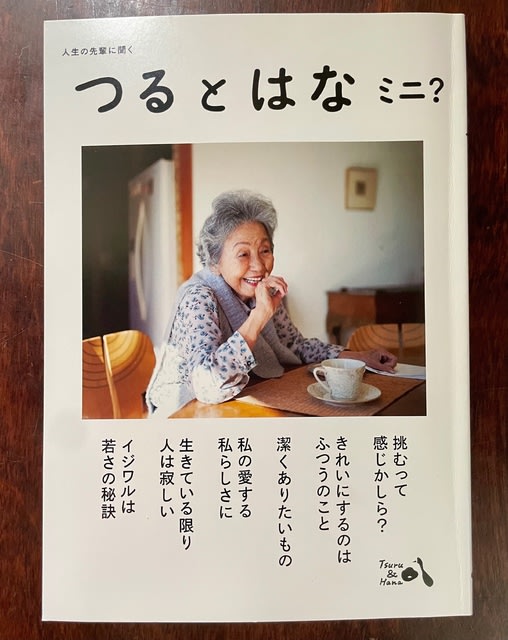 人生の先輩に聞く
つるとはな ミニ?
挑むって
感じかしら?
きれいにするのは
ふつうのこと
潔くありたいもの
私の愛する
私らしさに
生きている限り
人は寂しい
イジワルは
若さの秘訣
Tsuru
&
Hana